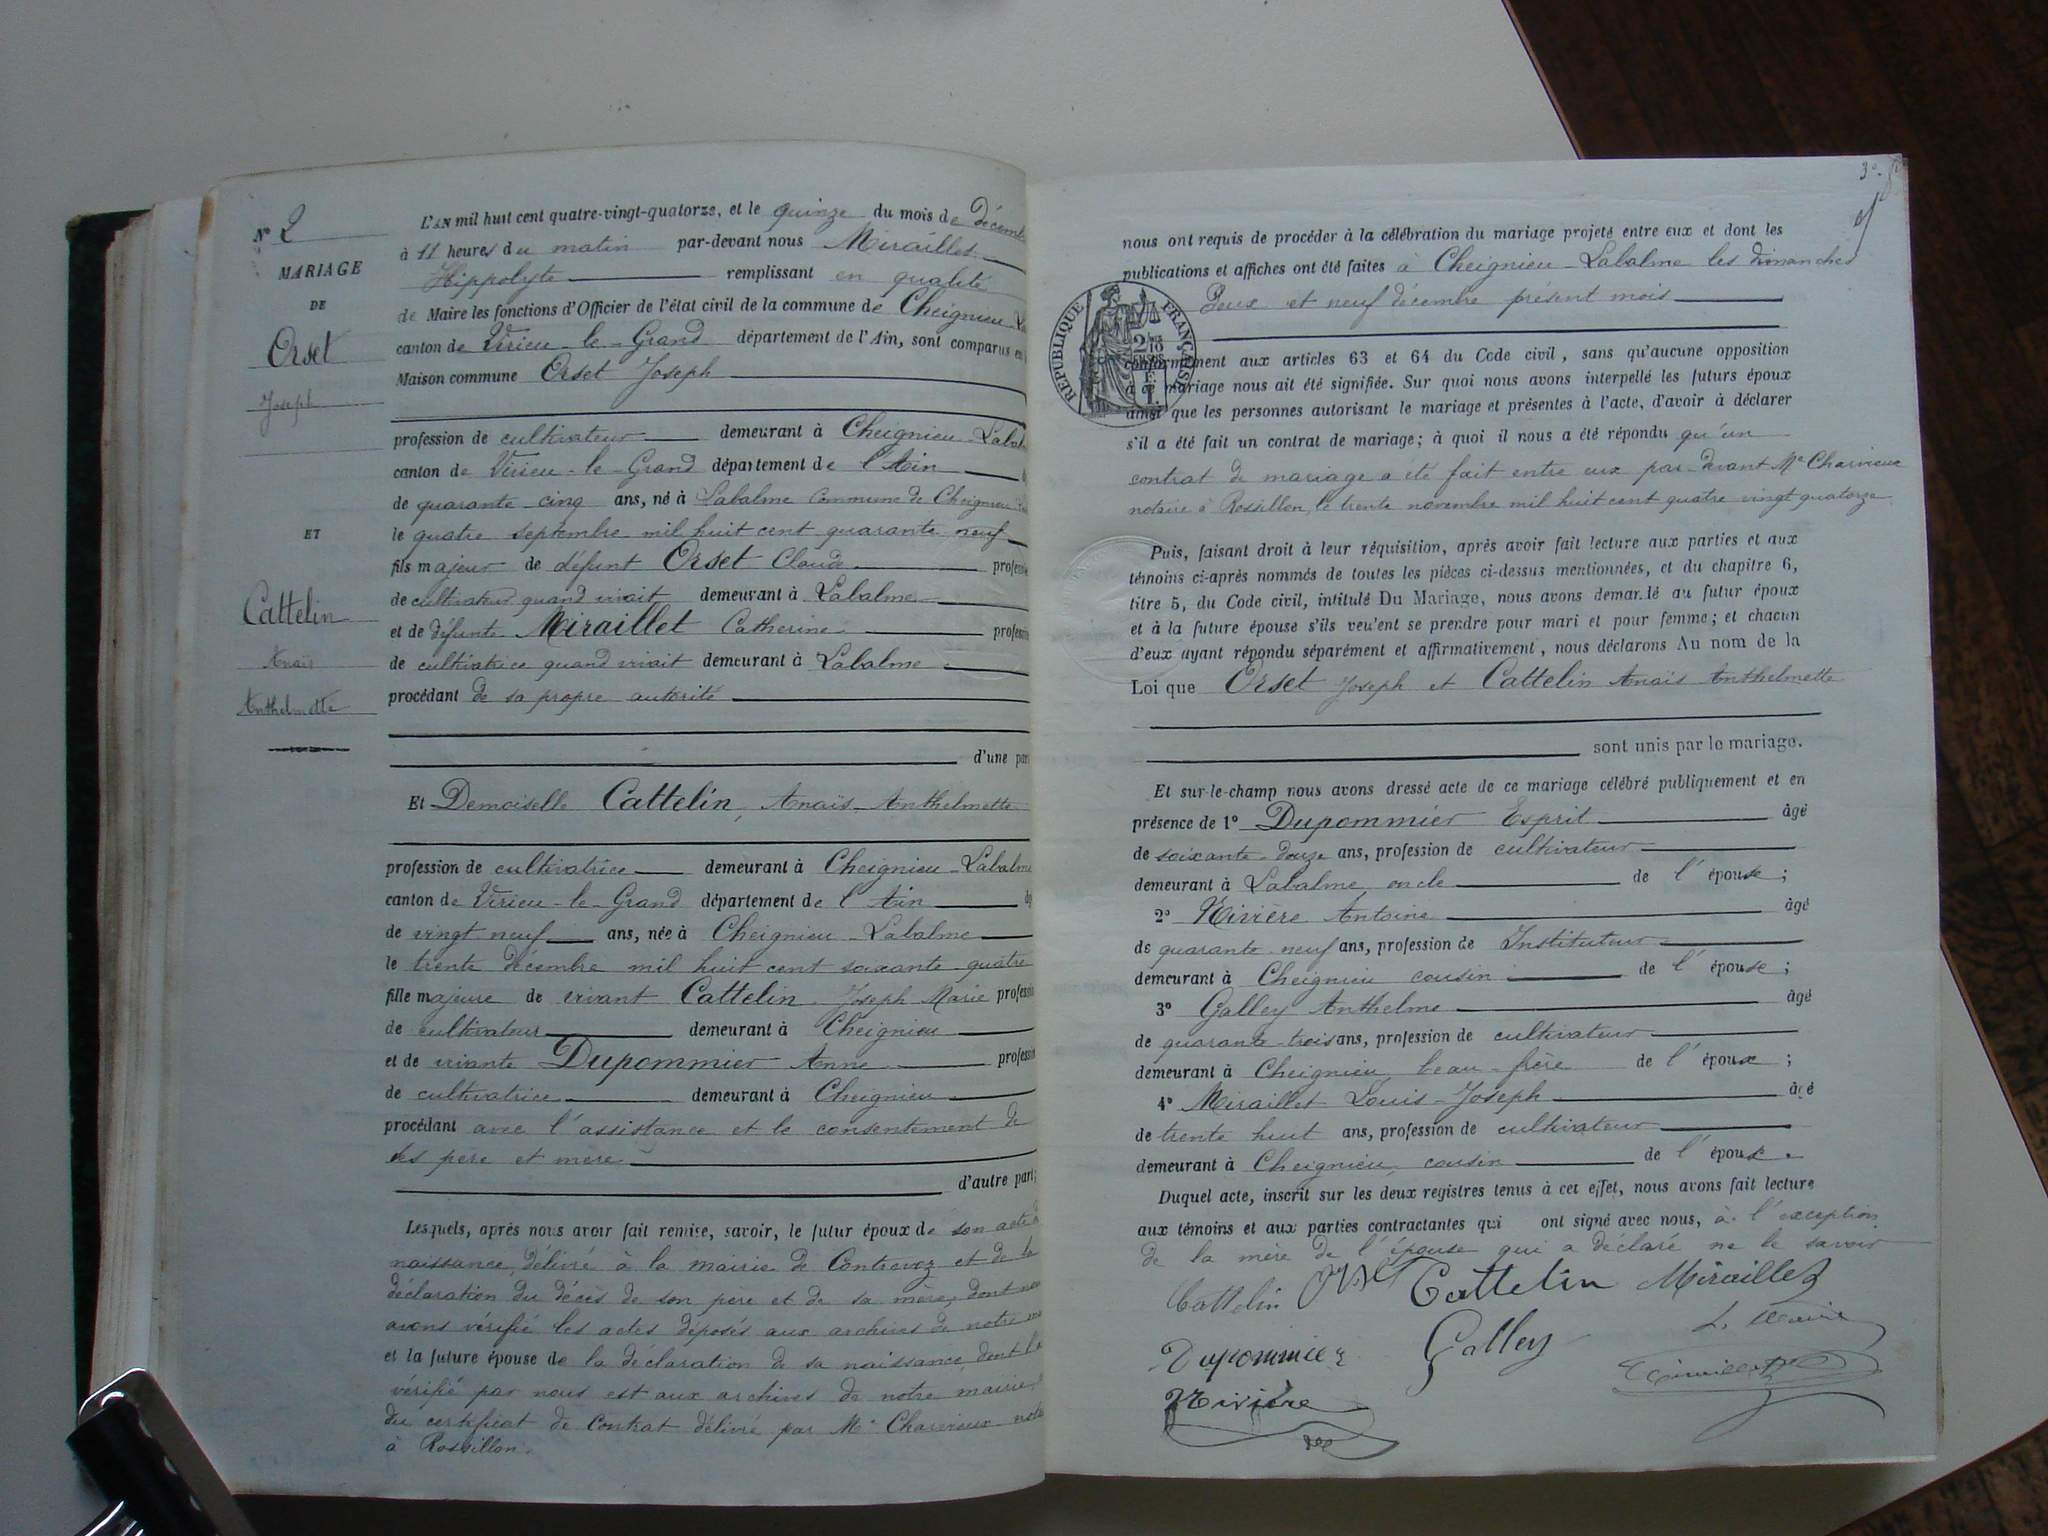 N° 2
MARIAGE
DE
Orset
Joseph
ET
Cattelin
Anaïs
Anthelmette
L'AN mil huit cent quatre-vingt-quatorze, et le quinze du mois de décemb
à 11 heures du matin par-devant nous Miraillet
Hippolyte remplissant en qualité
de Maire les fonctions d'Officier de l'état civil de la commune de Cheignieu La
canton de Virieu-le-Grand département de l'Ain, sont comparus en
Maison commune Orset Joseph
profession de cultivateur demeurant à Cheignieu-Labal
canton de Virieu-le-Grand département de l'Ain
de quarante-cinq ans, né à Labalme Commune de Cheignieu
le quatre septembre mil huit cent quarante neuf
fils majeur de défunt Orset Claude professi
de cultivateur quand vivait demeurant à Labalme
et de défunte Miraillet Catherine professi
de cultivatrice quand vivait demeurant à Labalme
procédant de sa propre autorité
d'une par
Et Demoiselle Cattelin, Anaïs-Anthelmette
profession de cultivatrice demeurant à Cheignieu-Labalme
canton de Virieu-le-Grand département de l'Ain âg
de vingt-neuf ans, née à Cheignieu-Labalme
le trente décembre mil huit cent soixante-quatre
fille majeure de vivant Cattelin Joseph Marie professi
de cultivateur demeurant à Cheignieu
et de vivante Dupommier Anne professi
de cultivatrice demeurant à Cheignieu
procédant avec l'assistance et le consentement de
ses père et mère
d'autre part;
Lesquels, après nous avoir fait remise, savoir, le futur époux de son acte d
naissance, délivré à la mairie de Contrevoz et de la
déclaration du décès de son père et de sa mère, dont no
avons vérifié les actes déposés aux archives de notre m
et la future épouse de la déclaration de sa naissance, dont l'a
vérifié par nous est aux archives de notre mairie,
du certificat de contrat délivré par Me Charvieux not
à Rossillon.
3e
nous ont requis de procéder à la célébration du mariage projeté entre eux et dont les
publications et affiches ont été faites à Cheignieu-Labalme les dimanches
Deux et neuf décembre présent mois
RÉPUBLIQUE FRANÇAISE
conformément aux articles 63 et 64 du Code civil, sans qu'aucune opposition
à ce mariage nous ait été signifiée. Sur quoi nous avons interpellé les futurs époux
ainsi que les personnes autorisant le mariage et présentes à l'acte, d'avoir à déclarer
s'il a été fait un contrat de mariage; à quoi il nous a été répondu qu'un
contrat de mariage a été fait entre eux par-devant Me Charvieux
notaire à Rossillon, le trente novembre mil huit cent quatre vingt quatorze
Puis, faisant droit à leur réquisition, après avoir fait lecture aux parties et aux
témoins ci-après nommés de toutes les pièces ci-dessus mentionnées, et du chapitre 6,
titre 5, du Code civil, intitulé Du Mariage, nous avons demandé au futur époux
et à la future épouse s'ils veulent se prendre pour mari et pour femme; et chacun
d'eux ayant répondu séparément et affirmativement, nous déclarons Au nom de la
Loi que Orset Joseph et Cattelin Anaïs Anthelmette
sont unis par le mariage.
Et sur-le-champ nous avons dressé acte de ce mariage célébré publiquement et en
présence de 1° Dupommier Esprit âgé
de soixante-douze ans, profession de cultivateur
demeurant à Labalme, oncle de l'épouse;
2° Rivière Antoine âgé
de quarante-neuf ans, profession de Instituteur
demeurant à Cheignieu cousin de l'épouse;
3° Galley Anthelme âgé
de quarante-trois ans, profession de cultivateur
demeurant à Cheignieu, beau-frère de l'époux;
4° Miraillet Louis-Joseph âgé
de trente huit ans, profession de cultivateur
demeurant à Cheignieu, cousin de l'époux.
Duquel acte, inscrit sur les deux registres tenus à cet effet, nous avons fait lecture
aux témoins et aux parties contractantes qui ont signé avec nous, à l'exception
de la mère de l'épouse qui a déclaré ne le savoir
Cattelin Orset Cattelin Miraillet
Dupommier Galley L. Maire
Rivière